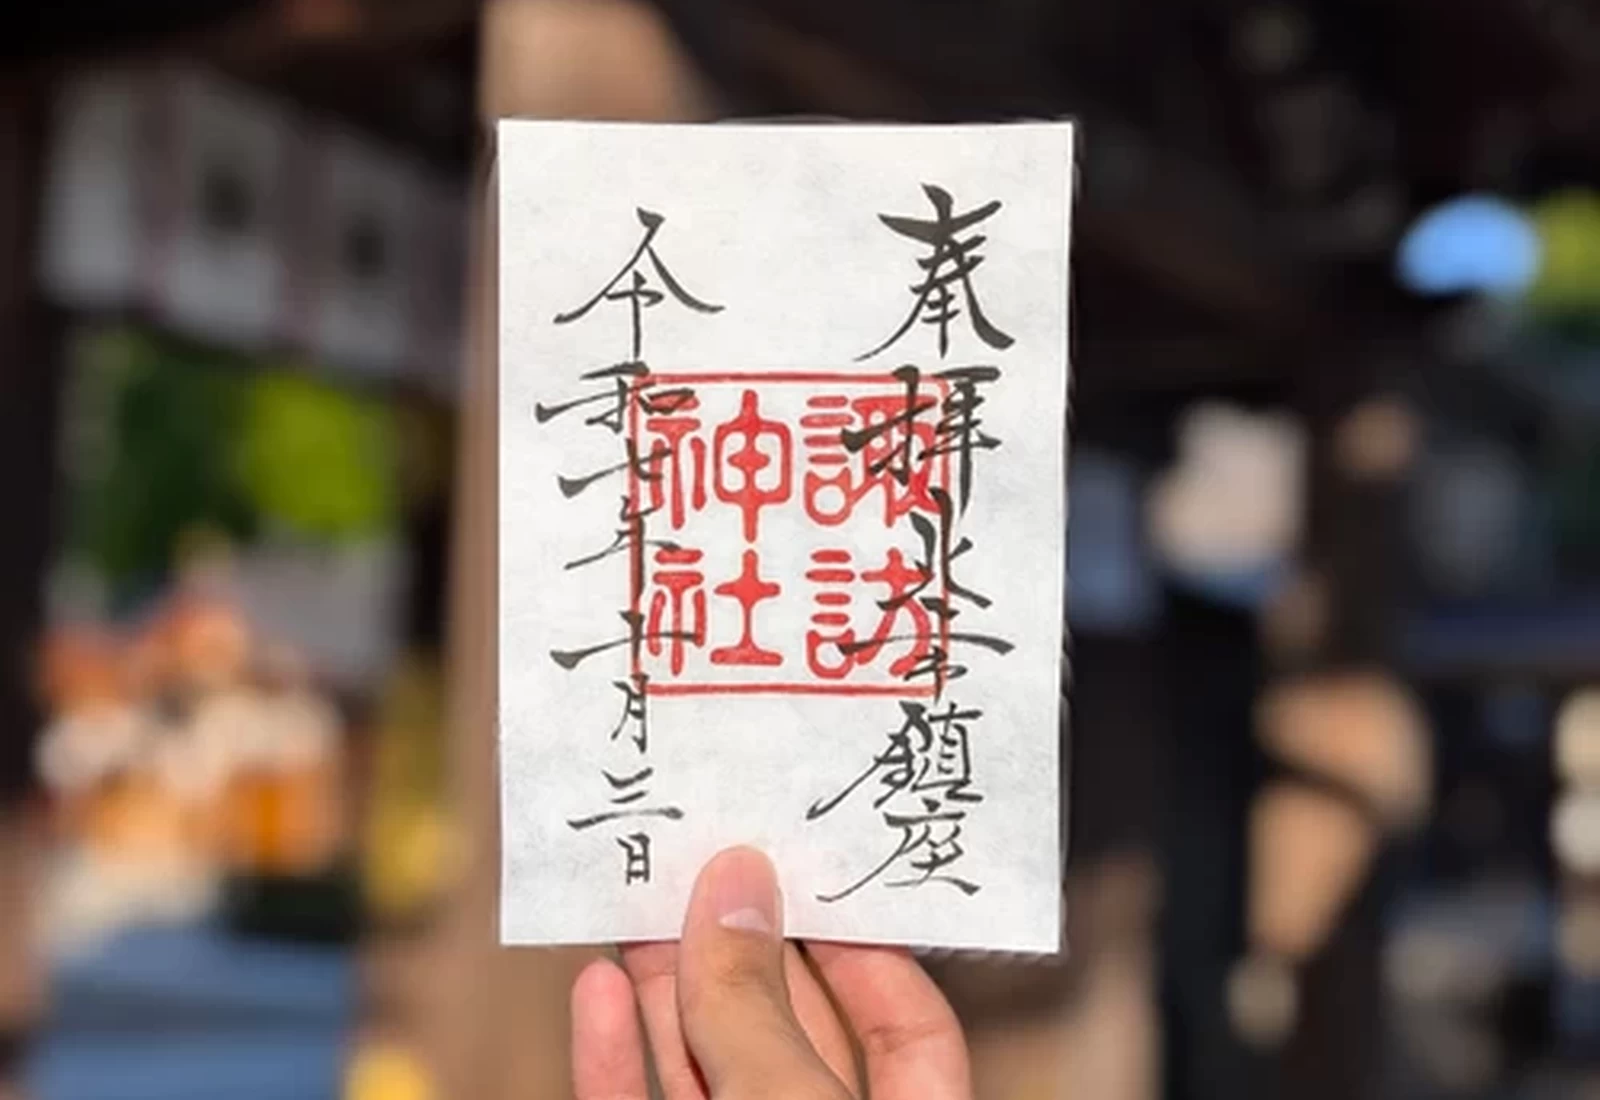 奉拝
鎮座
諏訪
神社
令和七年十月三日